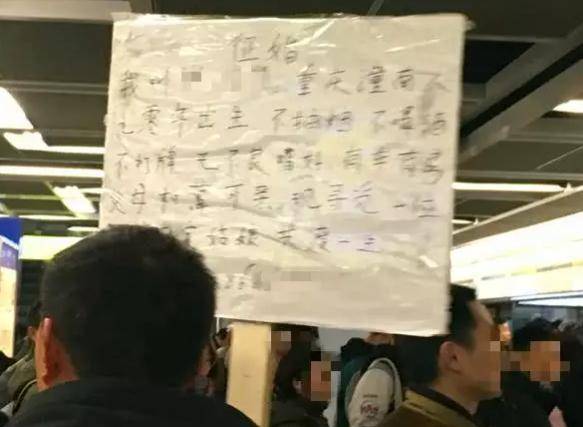 征婚
我叫 重庆潼南人
零年出生 不抽烟 不喝酒
不打牌 无不良嗜好 有车有房
父母和蔼可亲 现寻觅一位
姑娘共度一生